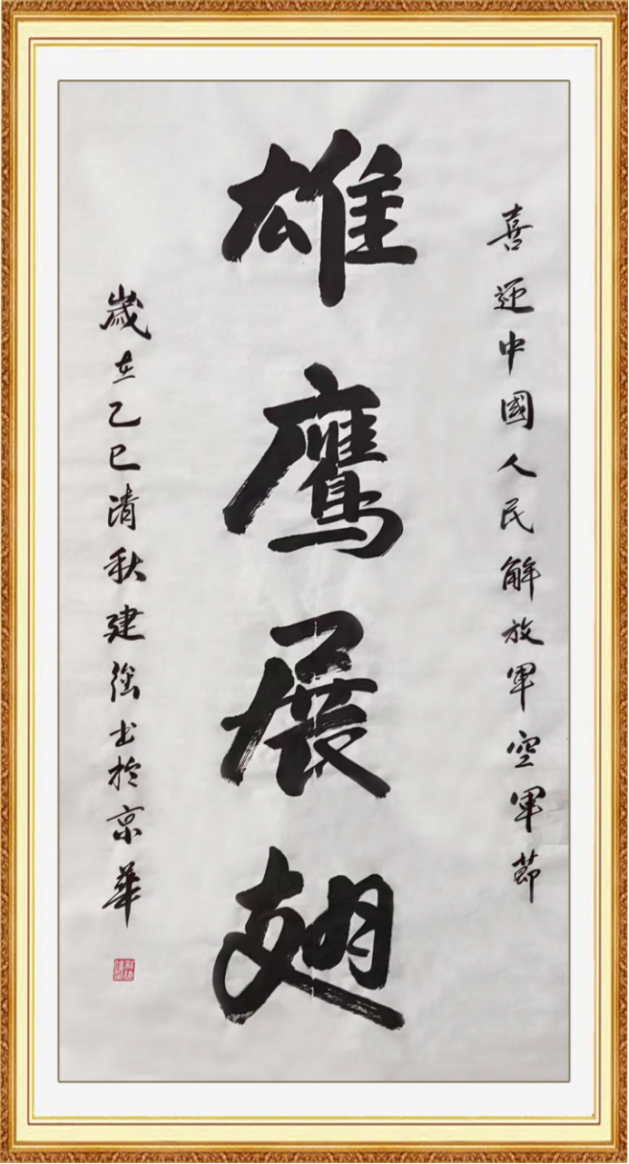 喜迎中國人民解放軍空軍節
雄鹰展翅
歲在乙巳清秋建强书於京華